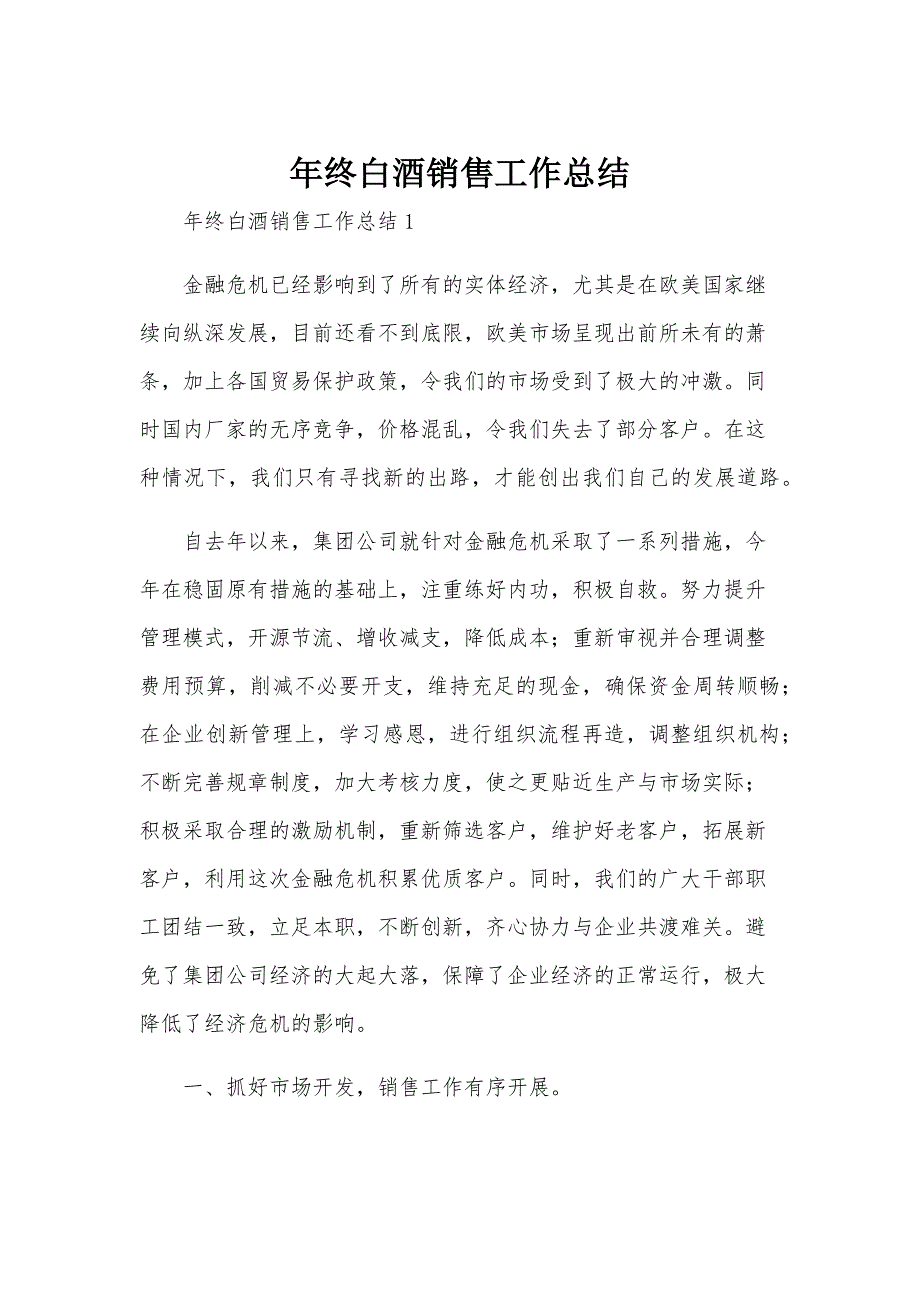 年终白酒销售工作总结
年终白酒销售工作总结 1
金融危机已经影响到了所有的实体经济，尤其是在欧美国家继
续向纵深发展，目前还看不到底限，欧美市场呈现出前所未有的萧
条，加上各国贸易保护政策，令我们的市场受到了极大的冲激。同
时国内厂家的无序竞争，价格混乱，令我们失去了部分客户。在这
种情况下，我们只有寻找新的出路，才能创出我们自己的发展道路。
自去年以来，集团公司就针对金融危机采取了一系列措施，今
年在稳固原有措施的基础上，注重练好内功，积极自救。努力提升
管理模式，开源节流、增收减支，降低成本；重新审视并合理调整
费用预算，削减不必要开支，维持充足的现金，确保资金周转顺畅；
在企业创新管理上，学习感恩，进行组织流程再造，调整组织机构；
不断完善规章制度，加大考核力度，使之更贴近生产与市场实际；
积极采取合理的激励机制，重新筛选客户，维护好老客户，拓展新
客户，利用这次金融危机积累优质客户。同时，我们的广大干部职
工团结一致，立足本职，不断创新，齐心协力与企业共渡难关。避
免了集团公司经济的大起大落，保障了企业经济的正常运行，极大
降低了经济危机的影响。
一、抓好市场开发，销售工作有序开展。